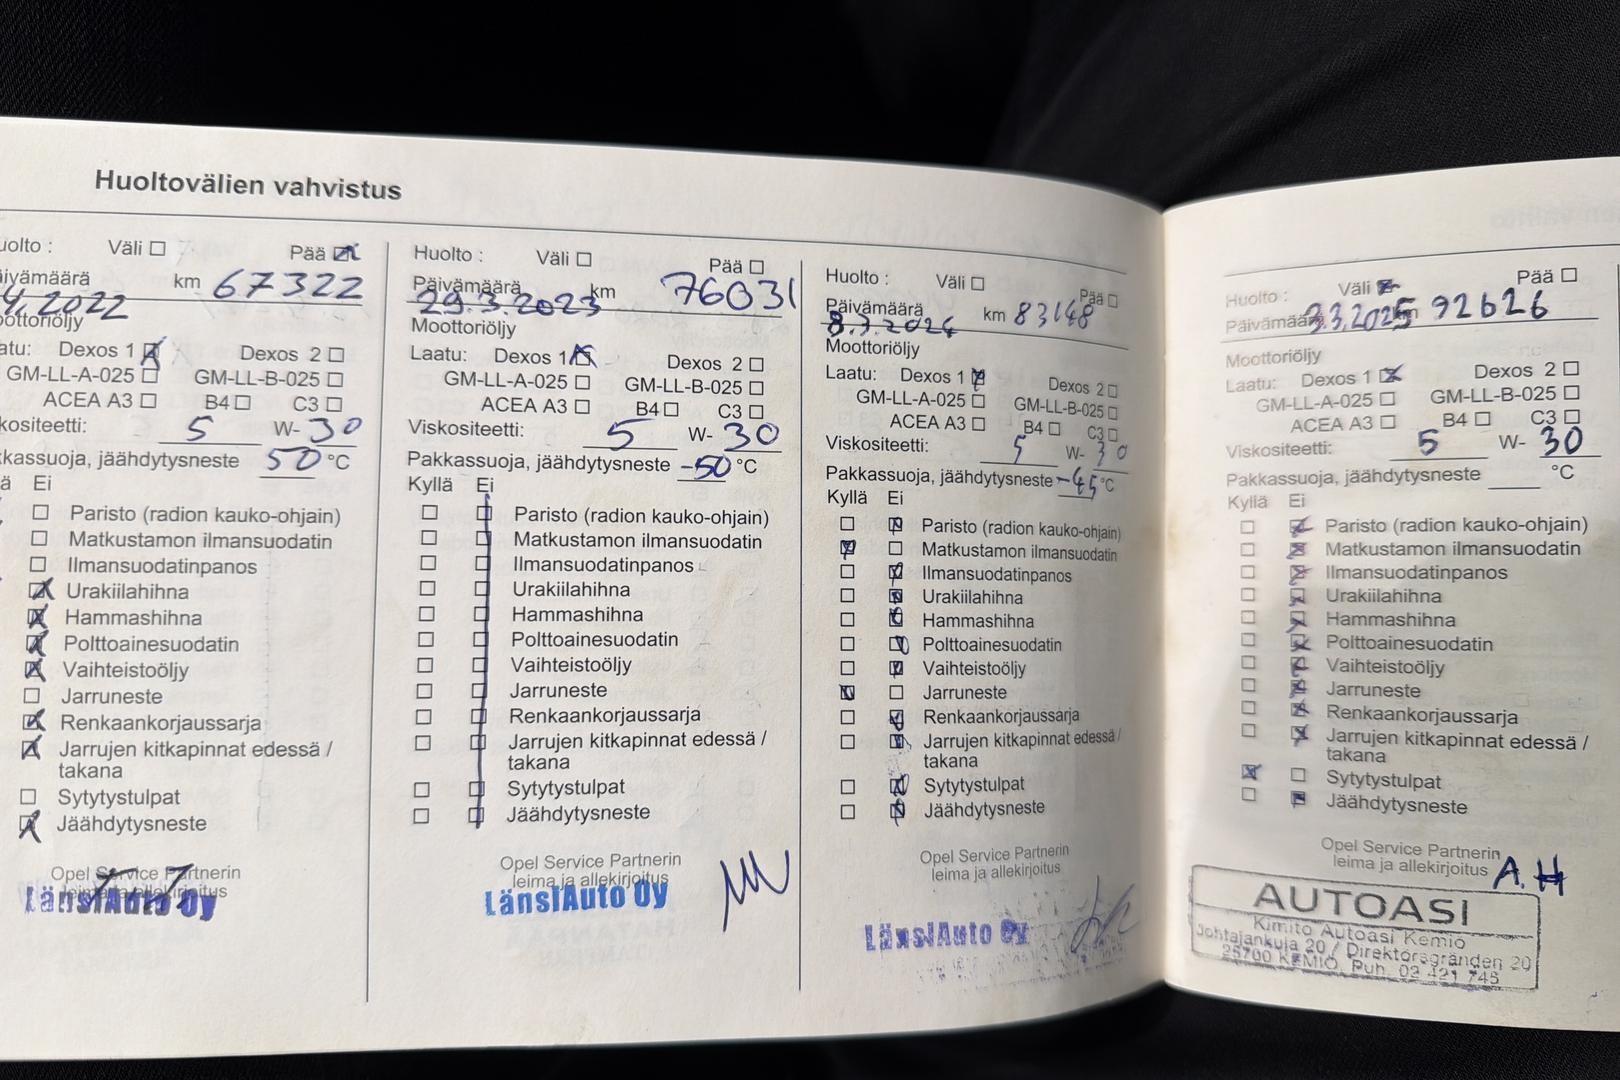 Huoltovälien vahvistus
uolto : Väli Pää
äivämäärä km 67322
4.2022
oottoriöljy
atu: Dexos 1 Dexos 2
GM-LL-A-025 GM-LL-B-025
ACEA A3 B4 C3
kositeetti: 5 W- 30
kkassuoja, jäähdytysneste 50 °C
ä Ei
Paristo (radion kauko-ohjain)
Matkustamon ilmansuodatin
Ilmansuodatinpanos
Urakiilahihna
Hammashihna
Polttoainesuodatin
Vaihteistoöljy
Jarruneste
Renkaankorjaussarja
Jarrujen kitkapinnat edessä /
takana
Sytytystulpat
Jäähdytysneste
Opel Service Partnerin
leima ja allekirjoitus
LänsiAuto Oy
Huolto : Väli Pää
Päivämäärä km 76031
29.3.2023
Moottoriöljy
Laatu: Dexos 1 Dexos 2
GM-LL-A-025 GM-LL-B-025
ACEA A3 B4 C3
Viskositeetti: 5 W- 30
Pakkassuoja, jäähdytysneste -50 °C
Kyllä Ei
Paristo (radion kauko-ohjain)
Matkustamon ilmansuodatin
Ilmansuodatinpanos
Urakiilahihna
Hammashihna
Polttoainesuodatin
Vaihteistoöljy
Jarruneste
Renkaankorjaussarja
Jarrujen kitkapinnat edessä /
takana
Sytytystulpat
Jäähdytysneste
Opel Service Partnerin
leima ja allekirjoitus
LänsiAuto Oy
Huolto : Väli Pää
Päivämäärä km 83148
8.3.2024
Moottoriöljy
Laatu: Dexos 1 Dexos 2
GM-LL-A-025 GM-LL-B-025
ACEA A3 B4 C3
Viskositeetti: 5 W- 30
Pakkassuoja, jäähdytysneste -45 °C
Kyllä Ei
Paristo (radion kauko-ohjain)
Matkustamon ilmansuodatin
Ilmansuodatinpanos
Urakiilahihna
Hammashihna
Polttoainesuodatin
Vaihteistoöljy
Jarruneste
Renkaankorjaussarja
Jarrujen kitkapinnat edessä /
takana
Sytytystulpat
Jäähdytysneste
Opel Service Partnerin
leima ja allekirjoitus
LänsiAuto Oy
Huolto : Väli Pää
Päivämäärä 3.3.2025 km 92626
Moottoriöljy
Laatu: Dexos 1 Dexos 2
GM-LL-A-025 GM-LL-B-025
ACEA A3 B4 C3
Viskositeetti: 5 W- 30
Pakkassuoja, jäähdytysneste °C
Kyllä Ei
Paristo (radion kauko-ohjain)
Matkustamon ilmansuodatin
Ilmansuodatinpanos
Urakiilahihna
Hammashihna
Polttoainesuodatin
Vaihteistoöljy
Jarruneste
Renkaankorjaussarja
Jarrujen kitkapinnat edessä /
takana
Sytytystulpat
Jäähdytysneste
Opel Service Partnerin
leima ja allekirjoitus A.H
AUTOASI
Kimito Autoasi Kemiö
Johtajankuja 20 / Direktörsgränden 20
25700 KEMIÖ, Puh. 02 421 745